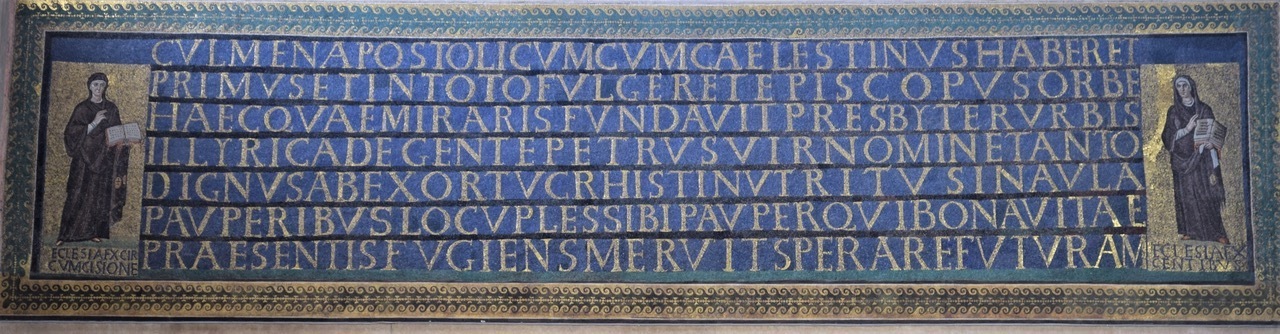 CVLMENAPOSTOLICVMCVMCAELESTINVSHABERET
PRIMVSETINTOTOFVLGERETEPISCOPVSORBE
HAECQVAEMIRARISFVNDAVITPRESBYTERVRBIS
ILLYRICADEGENTEPETRVSVIRNOMINETANTO
DIGNVSABEXORTVCRHISTINVTRITVSINAVLA
PAVPERIBVSLOCVPLESSIBIPAVPERQVIBONAVITAE
PRAESENTISFVGIENSMERVITSPERAREFVTVRAM
ECLESIAEXCIR
CVMCISIONE
ECLESIAEX
GENTIBVS